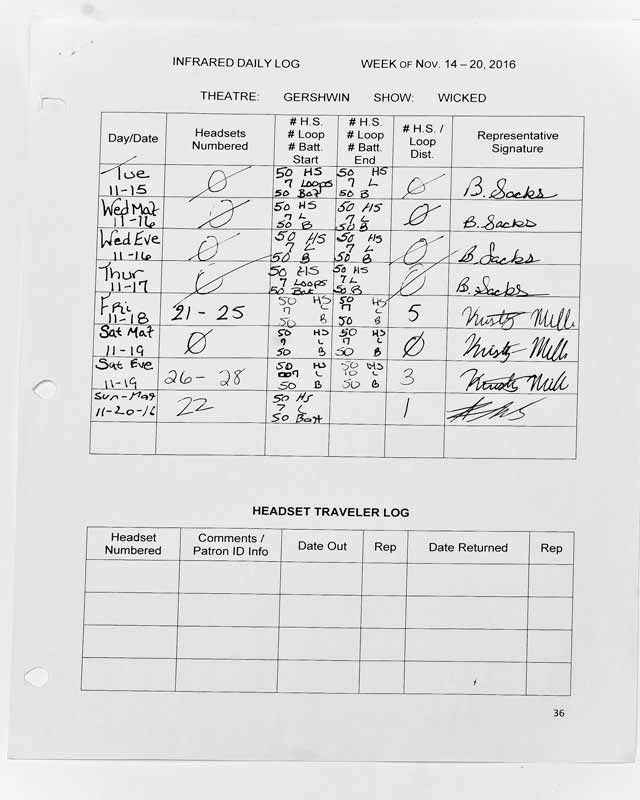 INFRARED DAILY LOG WEEK OF NOV. 14 – 20, 2016
THEATRE: GERSHWIN SHOW: WICKED
Day/Date
Headsets Numbered
# H.S. # Loop # Batt. Start
# H.S. # Loop # Batt. End
# H.S. / Loop Dist.
Representative Signature
Tue 11-15 Ø 50 HS 7 Loops 50 Bat 50 HS 7 L 50 B Ø B. Sacks
Wed Mat 11-16 Ø 50 HS 7 L 50 B 50 HS 7 L 50 B Ø B. Sacks
Wed Eve 11-16 Ø 50 HS 7 L 50 B 50 HS 7 L 50 B Ø B. Sacks
Thur 11-17 Ø 50 HS 7 Loops 50 Bat 50 HS 7 L 50 B Ø B. Sacks
Fri 11-18 21 - 25 50 HS 7 L 50 B 50 HS 7 L 50 B 5 Kristy Mills
Sat Mat 11-19 Ø 50 HS 7 L 50 B 50 HS 7 L 50 B Ø Kristy Mills
Sat Eve 11-19 26 - 28 50 HS 7 L 50 B 50 HS L 50 B 3 Kristy Mill
Sun-Mat 11-20-16 22 50 HS 7 L 50 Batt 1
HEADSET TRAVELER LOG
Headset Numbered
Comments / Patron ID Info
Date Out
Rep
Date Returned
Rep
36